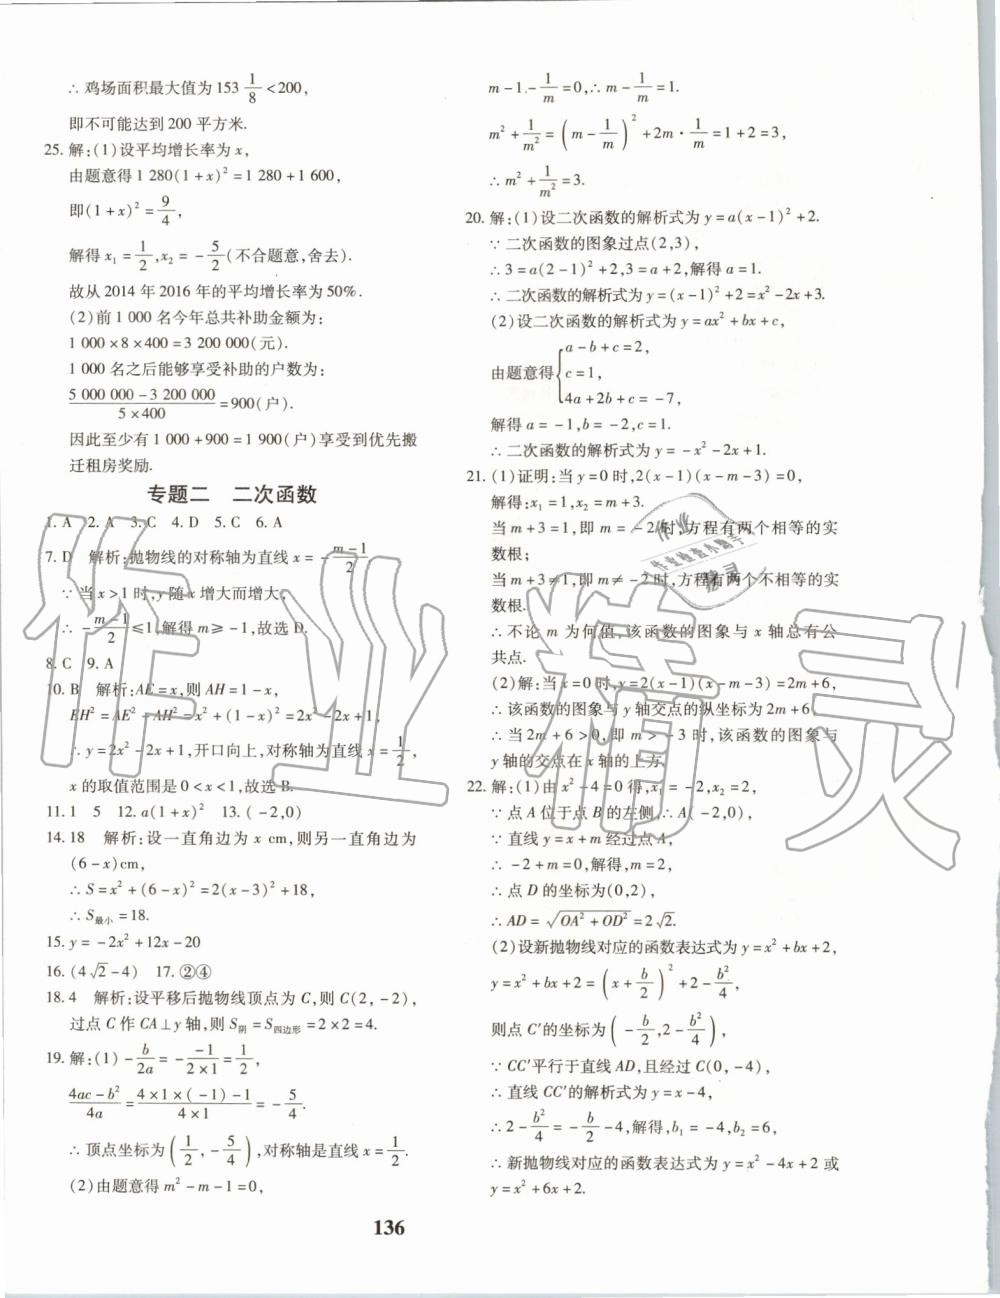 ∴ 鸡场面积最大值为 153 1/8 <200,
即不可能达到 200 平方米.
25. 解:(1)设平均增长率为 x,
由题意得 1 280(1+x)²=1 280+1 600,
即(1+x)²=9/4,
解得 x₁=1/2,x₂=-5/2(不合题意,舍去).
故从 2014 年 2016 年的平均增长率为 50%.
(2)前 1 000 名今年总共补助金额为:
1 000×8×400=3 200 000(元).
1 000 名之后能够享受补助的户数为:
(5 000 000-3 200 000)/(5×400)=900(户).
因此至少有 1 000+900=1 900(户)享受到优先搬
迁租房奖励.
专题二 二次函数
1. A 2. A 3. C 4. D 5. C 6. A
7. D 解析:抛物线的对称轴为直线 x=-(m-1)/2
∵ 当 x>1 时,y 随 x 增大而增大,
∴ -(m-1)/2≤1,解得 m≥-1,故选 D.
8. C 9. A
10. B 解析:AE=x,则 AH=1-x,
EH²=AE²+AH²=x²+(1-x)²=2x²-2x+1,
∴ y=2x²-2x+1,开口向上,对称轴为直线 x=1/2,
x 的取值范围是 0<x<1,故选 B.
11. 1 5 12. a(1+x)² 13. (-2,0)
14. 18 解析:设一直角边为 x cm,则另一直角边为
(6-x)cm,
∴ S=x²+(6-x)²=2(x-3)²+18,
∴ S最小=18.
15. y=-2x²+12x-20
16. (4√2-4) 17. ②④
18. 4 解析:设平移后抛物线顶点为 C,则 C(2,-2),
过点 C 作 CA⊥y 轴,则 S阴=S四边形=2×2=4.
19. 解:(1)-b/2a=-(-1)/(2×1)=1/2,
(4ac-b²)/4a=(4×1×(-1)-1)/(4×1)=-5/4.
∴ 顶点坐标为(1/2,-5/4),对称轴是直线 x=1/2.
(2)由题意得 m²-m-1=0,
m-1-1/m=0,∴ m-1/m=1.
m²+1/m²=(m-1/m)²+2m·1/m=1+2=3,
∴ m²+1/m²=3.
20. 解:(1)设二次函数的解析式为 y=a(x-1)²+2.
∵ 二次函数的图象过点(2,3),
∴ 3=a(2-1)²+2,3=a+2,解得 a=1.
∴ 二次函数的解析式为 y=(x-1)²+2=x²-2x+3.
(2)设二次函数的解析式为 y=ax²+bx+c,
由题意得{a-b+c=2,
c=1,
4a+2b+c=-7,
解得 a=-1,b=-2,c=1.
∴ 二次函数的解析式为 y=-x²-2x+1.
21. (1)证明:当 y=0 时,2(x-1)(x-m-3)=0,
解得:x₁=1,x₂=m+3.
当 m+3=1,即 m=-2时,方程有两个相等的实
数根;
当 m+3≠1,即 m≠-2时,方程有两个不相等的实
数根.
∴ 不论 m 为何值,该函数的图象与 x 轴总有公
共点.
(2)解:当 x=0 时,y=2(x-1)(x-m-3)=2m+6,
∴ 该函数的图象与 y 轴交点的纵坐标为 2m+6,
∴ 当 2m+6>0,即 m>-3 时,该函数的图象与
y 轴的交点在 x 轴的上方.
22. 解:(1)由 x²-4=0得,x₁=-2,x₂=2,
∵ 点 A 位于点 B 的左侧,∴ A(-2,0),
∵ 直线 y=x+m 经过点 A,
∴ -2+m=0,解得,m=2,
∴ 点 D 的坐标为(0,2),
∴ AD=√(OA²+OD²)=2√2.
(2)设新抛物线对应的函数表达式为 y=x²+bx+2,
y=x²+bx+2=(x+b/2)²+2-b²/4,
则点 C′的坐标为(-b/2,2-b²/4),
∵ CC′平行于直线 AD,且经过 C(0,-4),
∴ 直线 CC′的解析式为 y=x-4,
∴ 2-b²/4=-b/2-4,解得,b₁=-4,b₂=6,
∴ 新抛物线对应的函数表达式为 y=x²-4x+2 或
y=x²+6x+2.
136
作业精灵